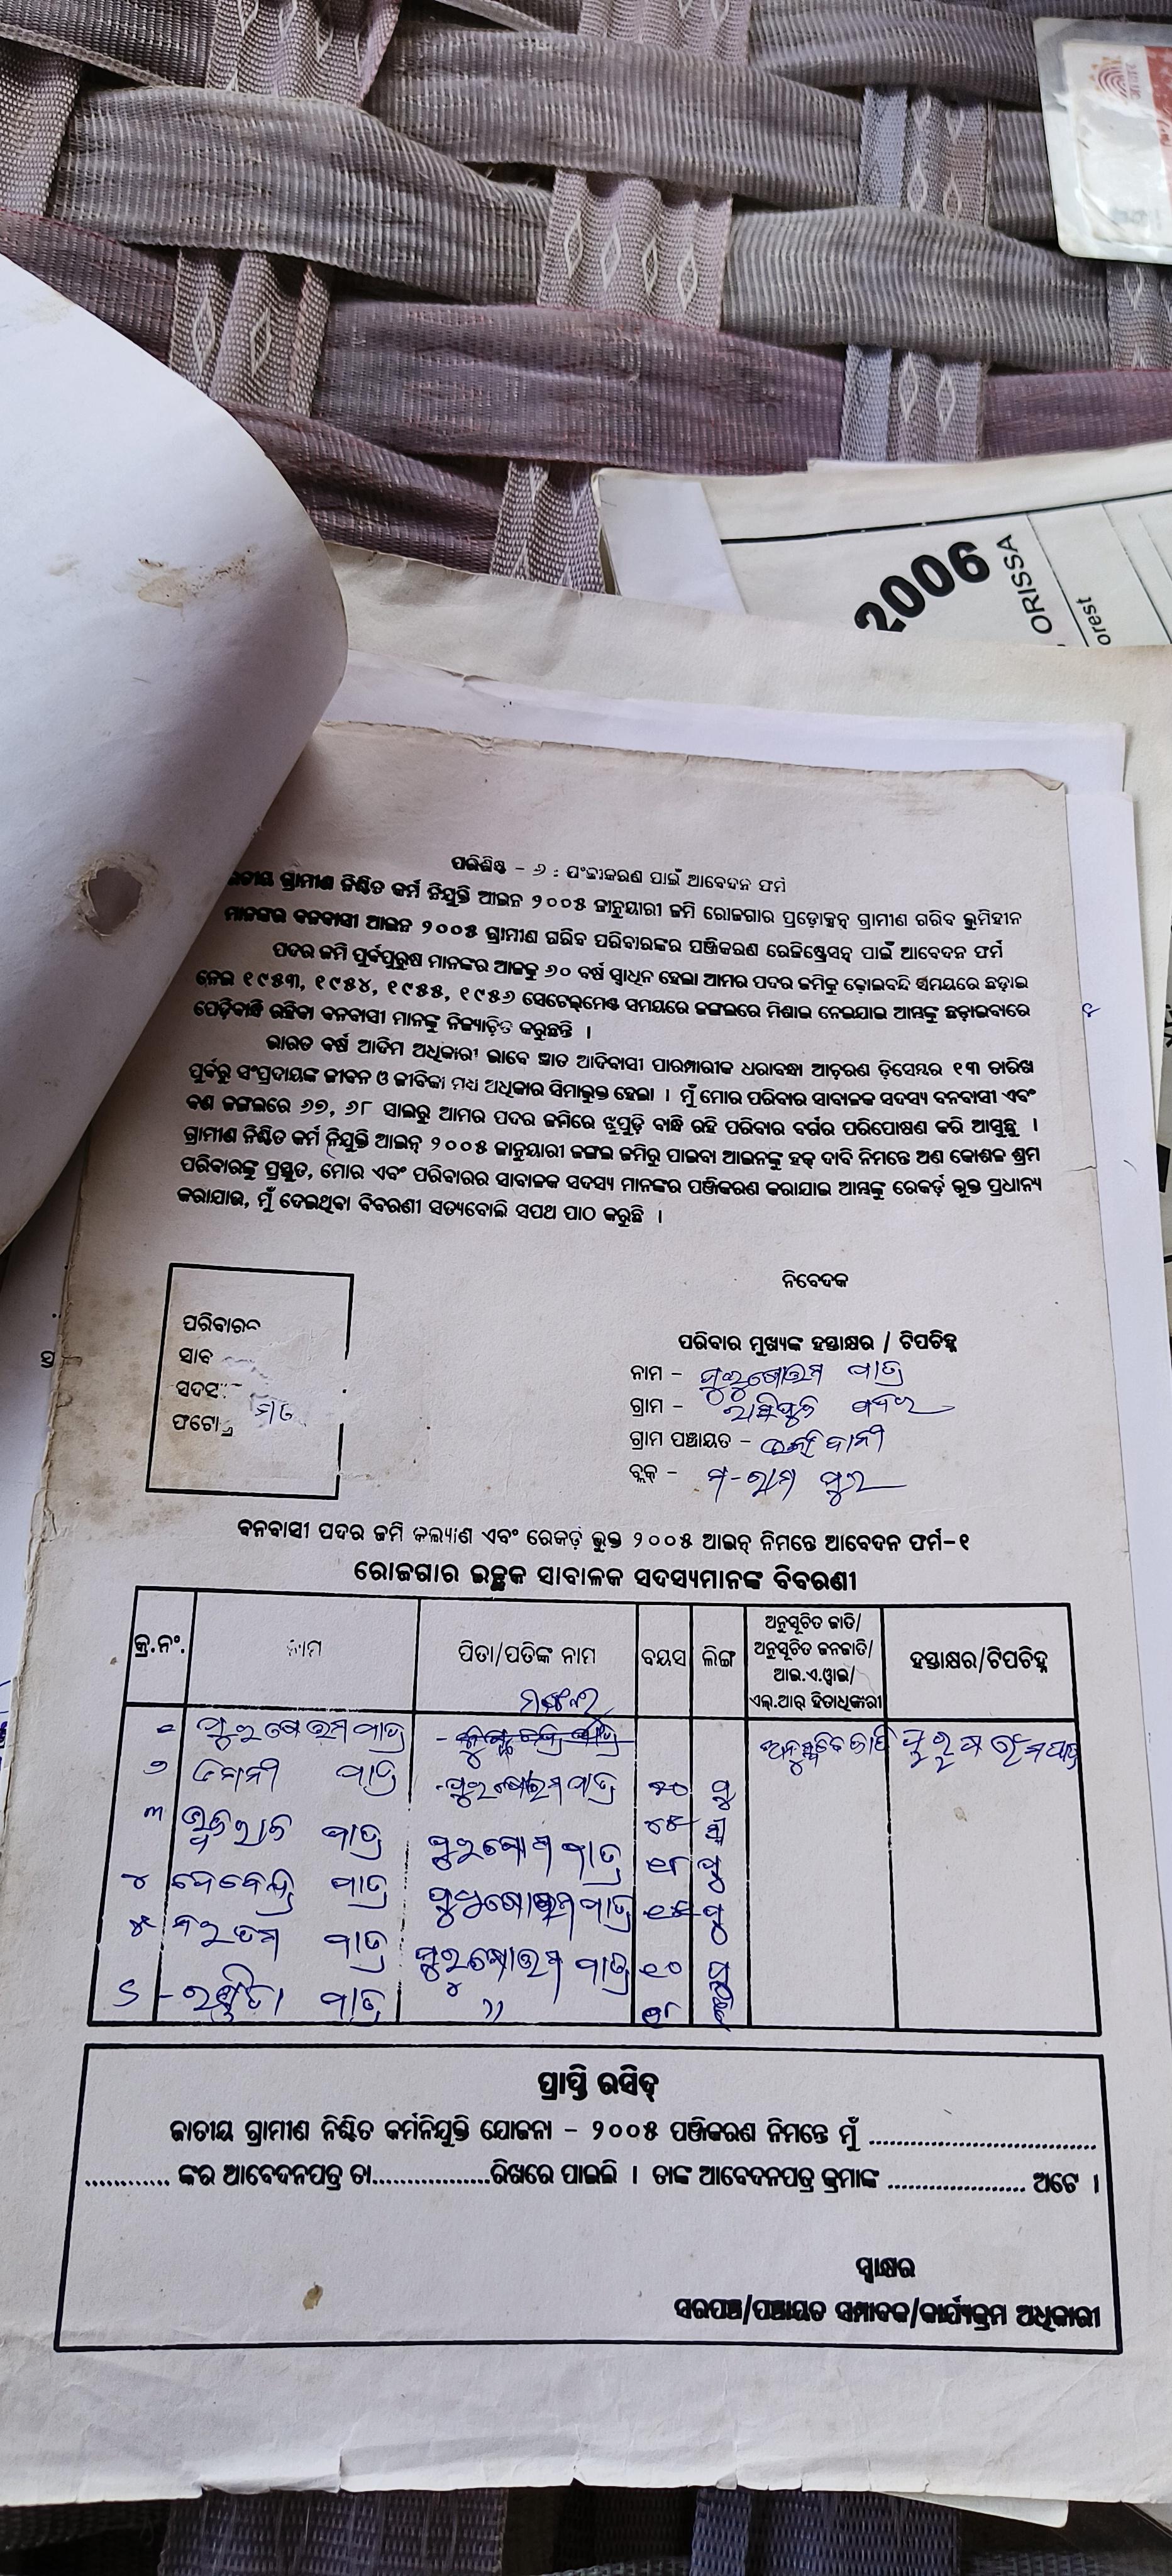 2006
ORISSA
orest
ପରିଶିଷ୍ଟ - ୬ : ପଂଜୀକରଣ ପାଇଁ ଆବେଦନ ଫର୍ମ
ଗ୍ରାମୀଣ ନିଶ୍ଚିତ କର୍ମ ନିଯୁକ୍ତି ଆଇନ ୨୦୦୫ ଜାନୁୟାରୀ ଜମି ରୋଜଗାର ପ୍ରଡ଼ୋକ୍ସନ୍ ଗ୍ରାମୀଣ ଗରିବ ଭୂମିହୀନ
ମାନଙ୍କର ବନବାସୀ ଆଇନ ୨୦୦୫ ଗ୍ରାମୀଣ ଗରିବ ପରିବାରଙ୍କର ପଞ୍ଜିକରଣ ରେଜିଷ୍ଟ୍ରେସନ୍ ପାଇଁ ଆବେଦନ ଫର୍ମ
ପଦର ଜମି ପୂର୍ବପୁରୁଷ ମାନଙ୍କର ଆଜକୁ ୬୦ ବର୍ଷ ସ୍ୱାଧିନ ହେଲା ଆମର ପଦର ଜମିକୁ ଢ଼ୋଇବନ୍ଦି ସମୟରେ ଛଡ଼ାଇ
ନେଇ ୧୯୫୩, ୧୯୫୪, ୧୯୫୫, ୧୯୫୬ ସେଟେଲ୍‌ମେଣ୍ଟ ସମୟରେ ଜଙ୍ଗଲରେ ମିଶାଇ ନେଇଯାଇ ଆମ୍ଭଙ୍କୁ ଛଡ଼ାଇବାରେ
ପେଡ଼ିବାନ୍ଧି ରହିବା ବନବାସୀ ମାନଙ୍କୁ ନିର୍ଜ୍ୟାଡ଼ିତ କରୁଛନ୍ତି ।
ଭାରତ ବର୍ଷ ଆଦିମ ଅଧିକାରୀ ଭାବେ ଜ୍ଞାତ ଆଦିବାସୀ ପାରମ୍ପାରୀକ ଧରାବନ୍ଧା ଆଚରଣ ଡ଼ିସେମ୍ବର ୧୩ ତାରିଖ
ପୂର୍ବରୁ ସଂପ୍ରଦାୟଙ୍କ ଜୀବନ ଓ ଜୀବିକା ମଧ୍ୟ ଅଧିକାର ସିମାଭୁକ୍ତ ହେଲା । ମୁଁ ମୋର ପରିବାର ସାବାଳକ ସଦସ୍ୟ ବନବାସୀ ଏବଂ
କଣ ଜଙ୍ଗଲରେ ୬୭, ୬୮ ସାଲରୁ ଆମର ପଦର ଜମିରେ ଝୁପୁଡ଼ି ବାନ୍ଧି ରହି ପରିବାର ବର୍ଗର ପରିପୋଷଣ କରି ଆସୁଛୁ ।
ଗ୍ରାମୀଣ ନିଶ୍ଚିତ କର୍ମ ନିଯୁକ୍ତି ଆଇନ୍ ୨୦୦୫ ଜାନୁୟାରୀ ଜଙ୍ଗଲ ଜମିରୁ ପାଇବା ଆଇନଙ୍କୁ ହକ୍ ଦାବି ନିମନ୍ତେ ଅଣ କୋଶଳ ଶ୍ରମ
ପରିବାରଙ୍କୁ ପ୍ରସ୍ତୁତ, ମୋର ଏବଂ ପରିବାରର ସାବାଳକ ସଦସ୍ୟ ମାନଙ୍କର ପଞ୍ଜିକରଣ କରାଯାଇ ଆମ୍ଭଙ୍କୁ ରେକର୍ଡ଼ ଭୁକ୍ତ ପ୍ରଧାନ୍ୟ
କରାଯାଉ, ମୁଁ ଦେଇଥିବା ବିବରଣୀ ସତ୍ୟବୋଲି ସପଥ ପାଠ କରୁଛି ।
ନିବେଦକ
ପରିବାରର
ସାବ
ସଦସ
ଫଟୋ
ପରିବାର ମୁଖ୍ୟଙ୍କ ହସ୍ତାକ୍ଷର / ଟିପଚିହ୍ନ
ନାମ - ପୁରୁଷୋତ୍ତମ ପାତ୍ର
ଗ୍ରାମ -
ଗ୍ରାମ ପଞ୍ଚାୟତ -
ବ୍ଲକ୍ - ମ-ରାମ ପୁର
ବନବାସୀ ପଦର ଜମି କଲ୍ୟାଣ ଏବଂ ରେକର୍ଡ଼ ଭୁକ୍ତ ୨୦୦୫ ଆଇନ୍ ନିମନ୍ତେ ଆବେଦନ ଫର୍ମ-୧
ରୋଜଗାର ଇଚ୍ଛୁକ ସାବାଳକ ସଦସ୍ୟମାନଙ୍କ ବିବରଣୀ
କ୍ର.ନଂ. ନାମ ପିତା/ପତିଙ୍କ ନାମ ବୟସ ଲିଙ୍ଗ ଅନୁସୂଚିତ ଜାତି/ ଅନୁସୂଚିତ ଜନଜାତି/ ଆଇ.ଏ.ୱାଇ/ ଏଲ୍.ଆର୍ ହିତାଧିକାରୀ ହସ୍ତାକ୍ଷର/ଟିପଚିହ୍ନ
୧ ପୁରୁଷୋତ୍ତମ ପାତ୍ର ଅନୁସୂଚିତ ଜାତି
୨ ପାତ୍ର ପୁରୁଷୋତ୍ତମ ପାତ୍ର ୫୦ ପୁ
୩ ପାତ୍ର ପାତ୍ର ୪୫ ସ୍ତ୍ରୀ
୪ ଦେବେନ୍ଦ୍ର ପାତ୍ର ପୁରୁଷୋତ୍ତମ ପାତ୍ର ପୁ
୫ ପାତ୍ର ପୁରୁଷୋତ୍ତମ ପାତ୍ର ୨୦ ପୁ
୬ - ପାତ୍ର "
ପ୍ରାପ୍ତି ରସିଦ୍
ଜାତୀୟ ଗ୍ରାମୀଣ ନିଶ୍ଚିତ କର୍ମନିଯୁକ୍ତି ଯୋଜନା - ୨୦୦୫ ପଞ୍ଜିକରଣ ନିମନ୍ତେ ମୁଁ ..............................
............ ଙ୍କର ଆବେଦନପତ୍ର ତା.................ରିଖରେ ପାଇଲି । ତାଙ୍କ ଆବେଦନପତ୍ର କ୍ରମାଙ୍କ .................... ଅଟେ ।
ସ୍ୱାକ୍ଷର
ସରପଞ୍ଚ/ପଞ୍ଚାୟତ ସମ୍ପାଦକ/କାର୍ଯ୍ୟକ୍ରମ ଅଧିକାରୀ